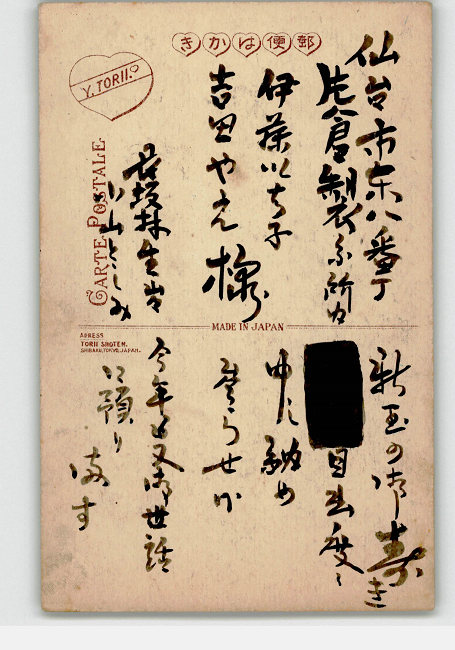 きかは便郵
Y. TORII.
CARTE POSTALE.
仙台市東八番丁
片倉製糸所内
伊藤いち子
吉田やえ
様
生
小山としみ
MADE IN JAPAN
ADRESS
TORII SHOTEN.
SHIBAKU, TOKYO, JAPAN.
新玉の御寿き
目出度く
申し納め
参らせ
今年も又御世話
に預り
ます